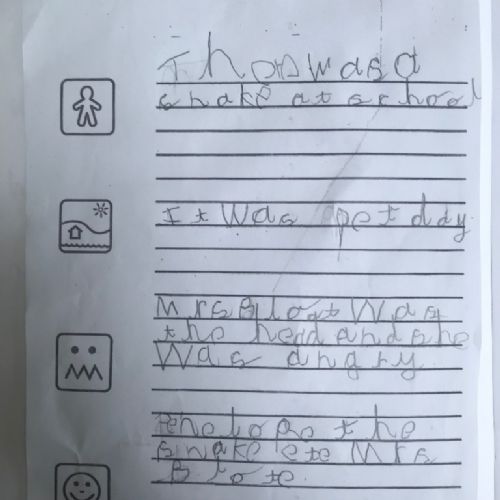 Thop was a
snake at school
It was pet day.
Mrs Bloat Was
the head and she
Was angry.
the
snake ete Mrs
Blote.